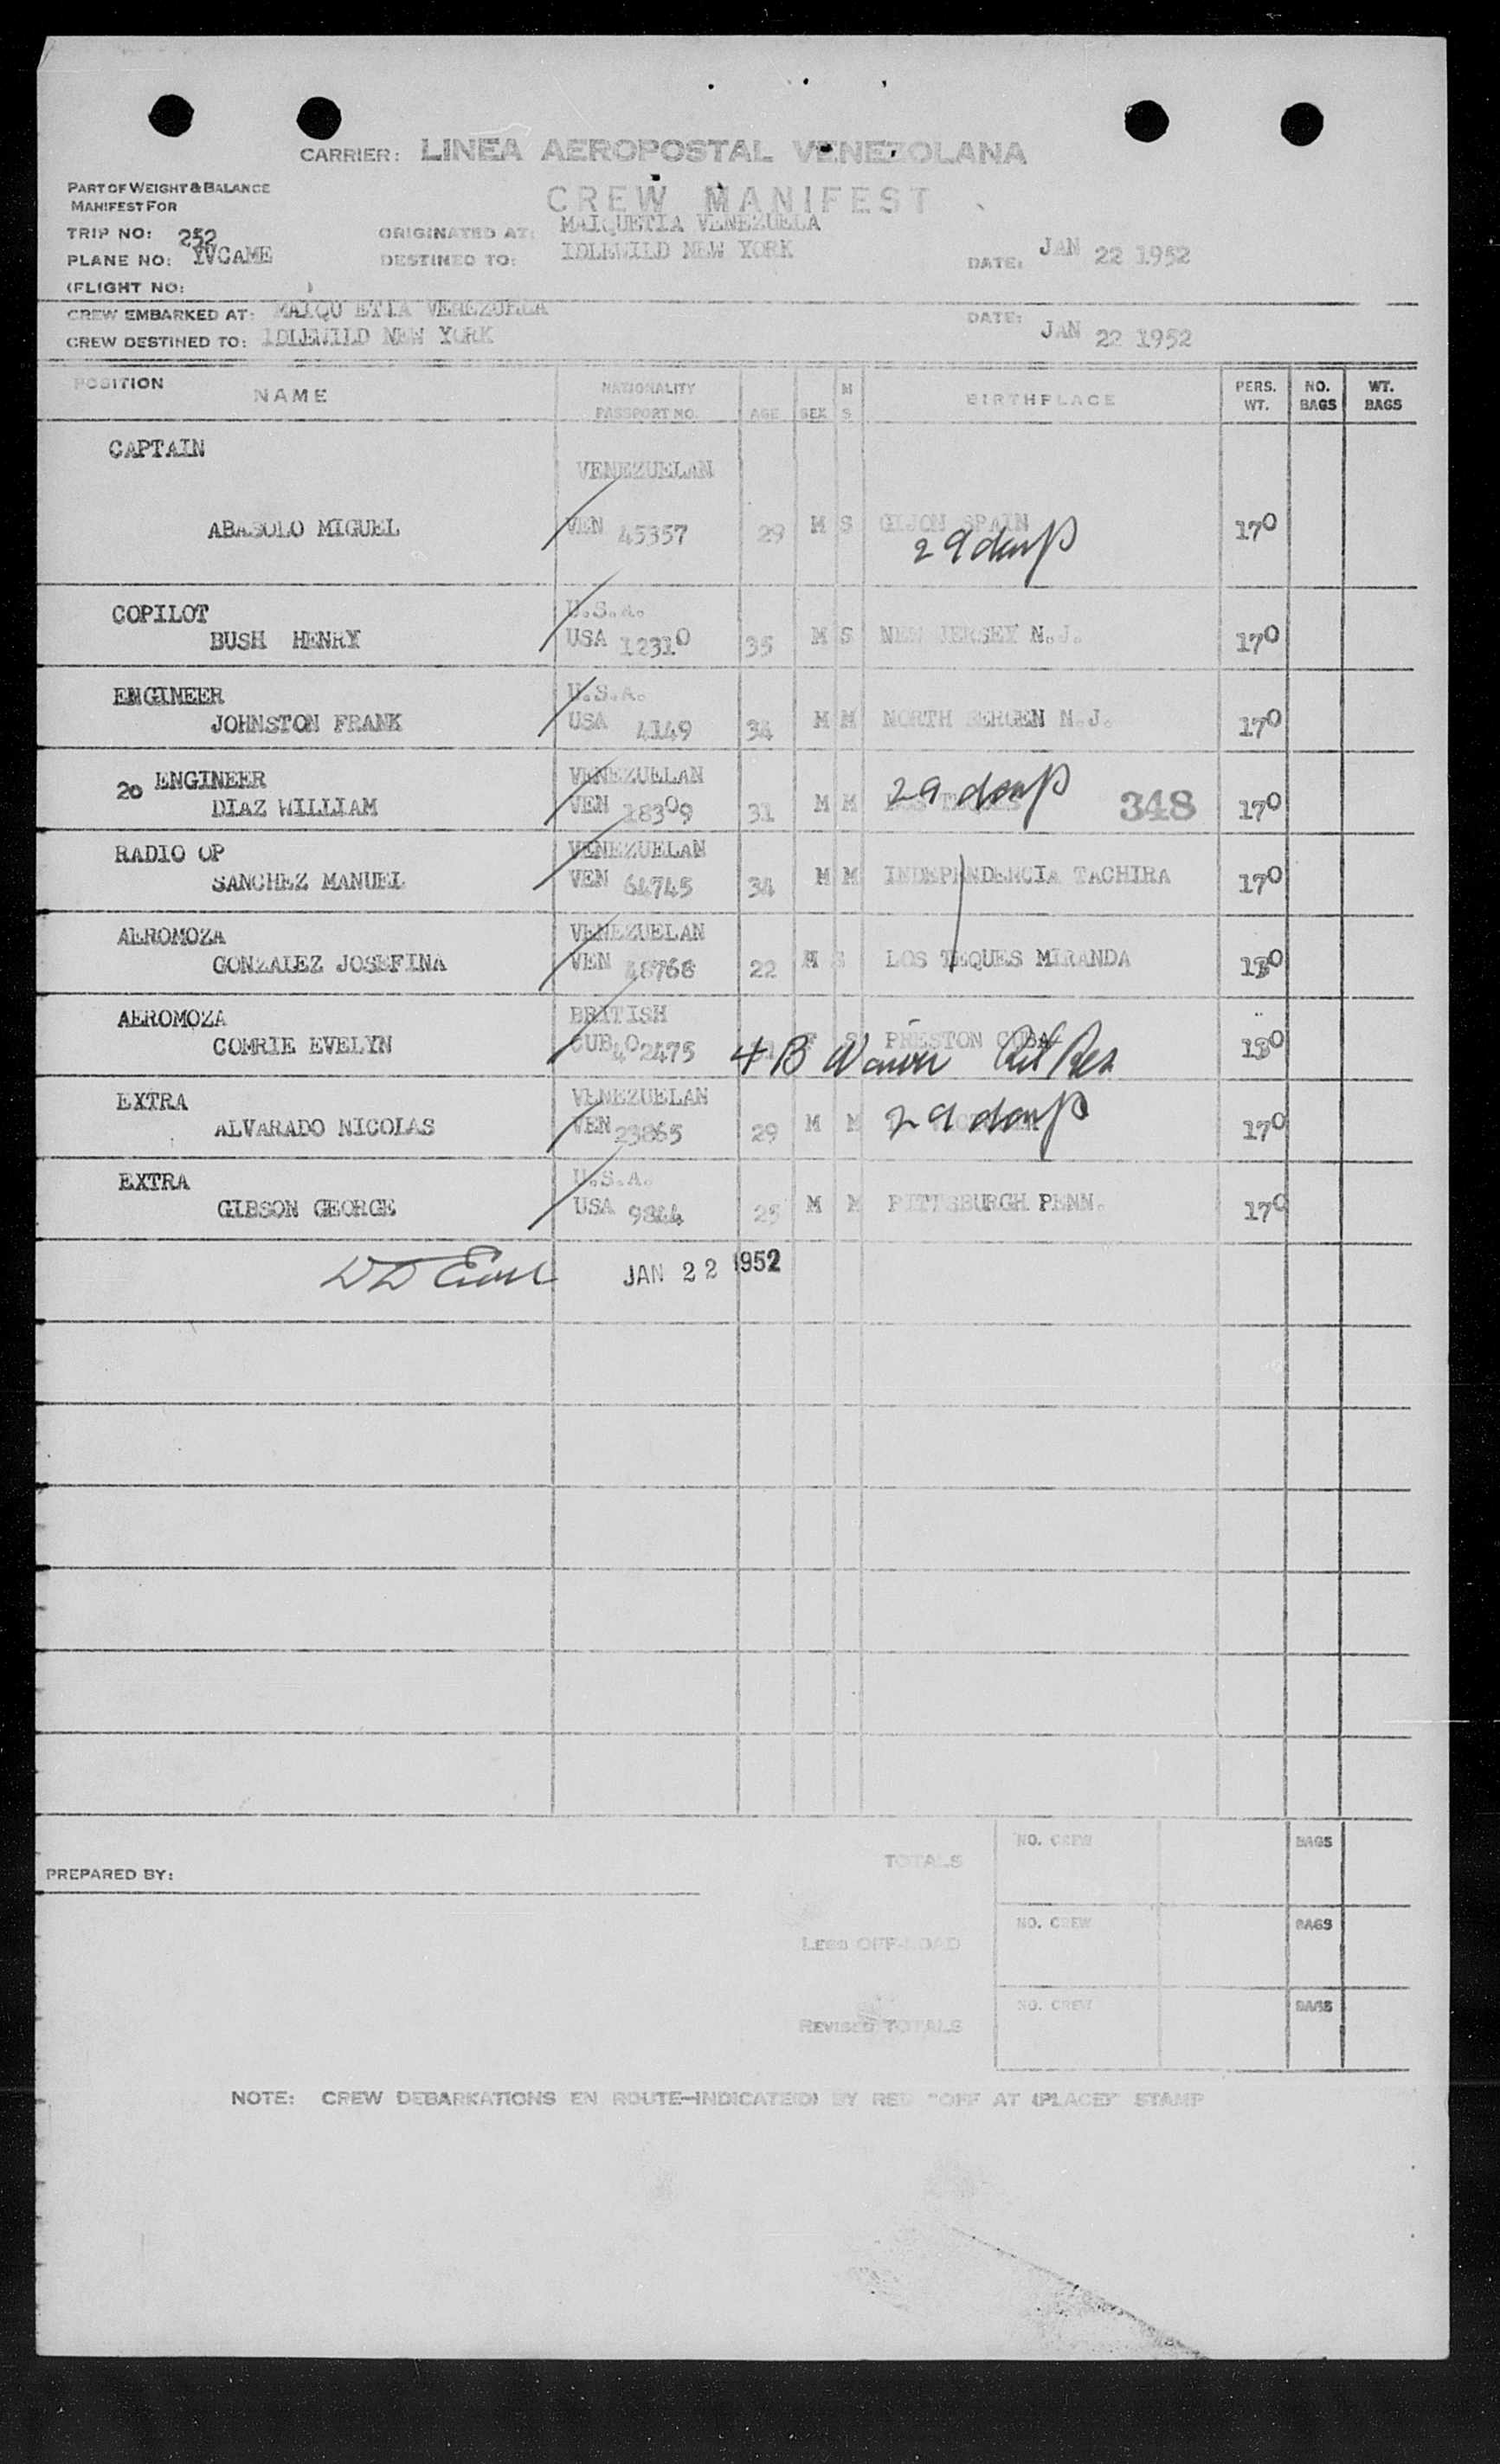 CARRIER: LINEA AEROPOSTAL VENEZOLANA
PART OF WEIGHT & BALANCE
MANIFEST FOR
CREW MANIFEST
TRIP NO: 252 ORIGINATED AT: MAIQUETIA VENEZUELA
PLANE NO: YVCAME DESTINED TO: IDLEWILD NEW YORK DATE: JAN 22 1952
(FLIGHT NO: )
CREW EMBARKED AT: MAIQU ETIA VENEZUELA DATE: JAN 22 1952
CREW DESTINED TO: IDLEWILD NEW YORK
POSITION NAME NATIONALITY PASSPORT NO. AGE SEX M S BIRTHPLACE PERS. WT. NO. BAGS WT. BAGS
CAPTAIN
VENEZUELAN
ABASOLO MIGUEL VEN 45357 29 M S GIJON SPAIN 170
29 days
COPILOT U.S.A.
BUSH HENRY USA 12310 35 M S NEW JERSEY N.J. 170
ENGINEER U.S.A.
JOHNSTON FRANK USA 4149 34 M M NORTH BERGEN N.J. 170
20 ENGINEER VENEZUELAN 29 days
DIAZ WILLIAM VEN 18309 31 M M 348 170
RADIO OP VENEZUELAN
SANCHEZ MANUEL VEN 64745 34 M M INDEPENDENCIA TACHIRA 170
AEROMOZA VENEZUELAN
GONZALEZ JOSEFINA VEN 48768 22 LOS TEQUES MIRANDA 130
AEROMOZA BRITISH
COMRIE EVELYN CUB 402475 F S PRESTON CUBA 130
4 B Waiver
EXTRA VENEZUELAN
ALVARADO NICOLAS VEN 23865 29 M M 29 days 170
EXTRA U.S.A.
GIBSON GEORGE USA 9844 25 M M PITTSBURGH PENN. 170
JAN 22 1952
TOTALS NO. CREW BAGS
PREPARED BY:
LESS OFF-LOAD NO. CREW BAGS
REVISED TOTALS NO. CREW BAGS
NOTE: CREW DEBARKATIONS EN ROUTE—INDICATE(D) BY RED "OFF AT (PLACE)" STAMP